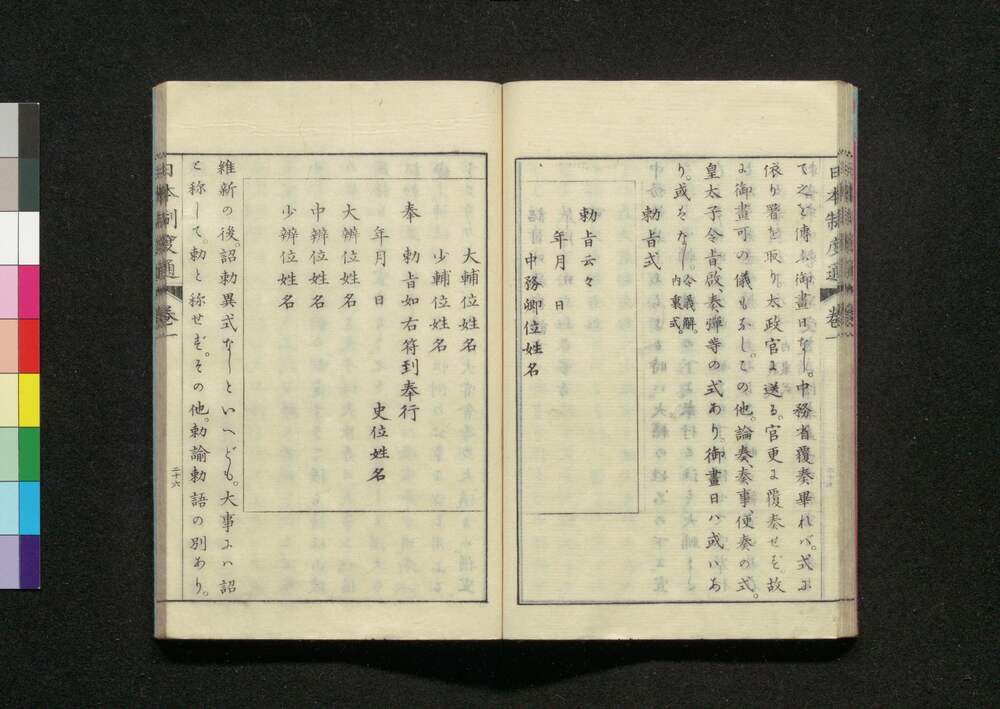 て之を傳へ、御畫日なし。中務省覆奏畢れバ。式に
依り署を取り。太政官に送る。官更に覆奏せず。故
に御畫可の儀もなし。その他。論奏、奏事、便奏の式。
皇太子令旨、啓、奏彈等の式あり。御畫日ハ或ハあ
り。或ハなし。令義解。内裏式。
勅旨式
勅旨云々
年月 日
中務卿位姓名
日本制度通 卷一
大輔位姓名
少輔位姓名
奉 勅旨如右符到奉行
史位姓名
年月 日
大辨位姓名
中辨位姓名
少辨位姓名
維新の後。詔勅異式なしといへども。大事にハ詔
と称して。勅と称せず。その他。勅諭勅語の別あり。
日本制度通 卷一
二十六